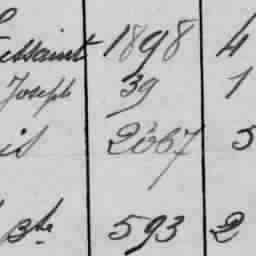 ussaint 1898 4
Joseph 39 1
is 2667 5
Bte 593 2